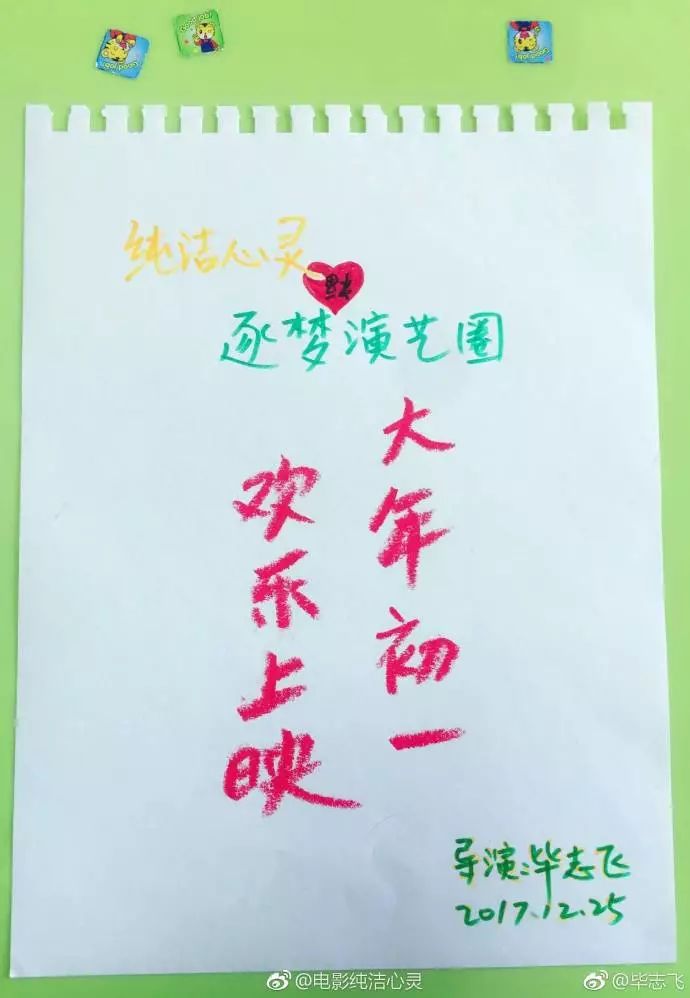 Good job!
纯洁心灵
逐梦演艺圈
大年初一
欢乐上映
导演:毕志飞
2017.12.25
@电影纯洁心灵
@毕志飞